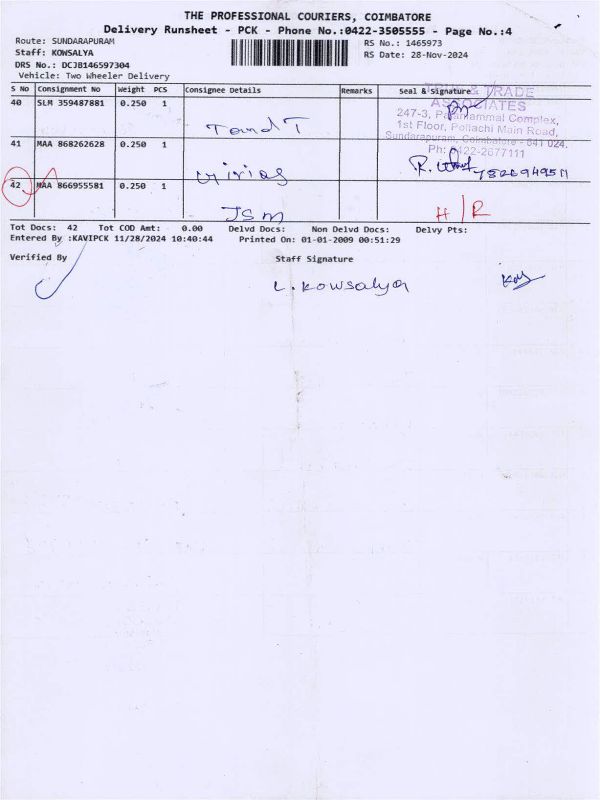 THE PROFESSIONAL COURIERS, COIMBATORE
Delivery Runsheet - PCK - Phone No.:0422-3505555 - Page No.:4
Route: SUNDARAPURAM
RS No.: 1465973
Staff: KOWSALYA
RS Date: 28-Nov-2024
DRS No.: DCJB146597304
Vehicle: Two Wheeler Delivery
S No Consignment No Weight PCS Consignee Details Remarks Seal & Signature
40 SLM 359487881 0.250 1
T and T
TRADE
ASSOCIATES
247-3, Palaniammal Complex,
1st Floor, Pollachi Main Road,
Sundarapuram, Coimbatore - 641 024.
Ph: 0422-2677111
41 MAA 868262628 0.250 1
R.
42 MAA 866955581 0.250 1
JSM
H/R
Tot Docs: 42 Tot COD Amt: 0.00 Delvd Docs: Non Delvd Docs: Delvy Pts:
Entered By :KAVIPCK 11/28/2024 10:40:44 Printed On: 01-01-2009 00:51:29
Verified By Staff Signature
L. Kowsalya